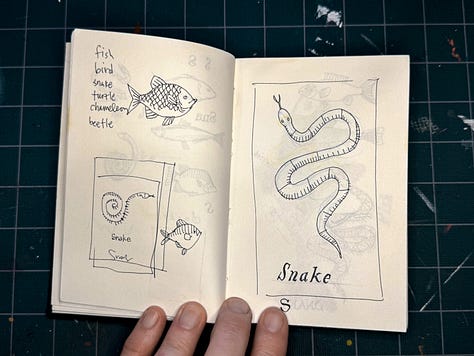 fish
bird
snake
turtle
chameleon
beetle
Snake
Snake
S